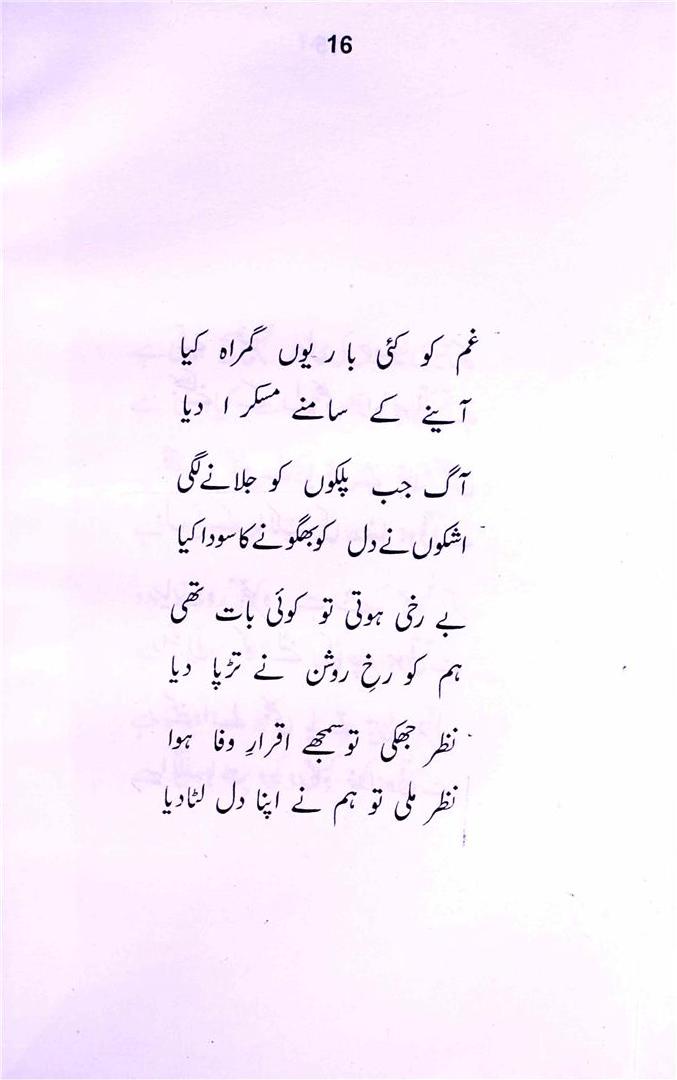 16
غم کو کئی بار یوں گمراہ کیا
آینے کے سامنے مسکرا دیا
آگ جب پلکوں کو جلانے لگی
اشکوں نے دل کو بھگونے کا سودا کیا
بے رخی ہوتی تو کوئی بات تھی
ہم کو رخِ روشن نے تڑپا دیا
نظر جھکی تو سمجھے اقرارِ وفا ہوا
نظر ملی تو ہم نے اپنا دل لٹا دیا